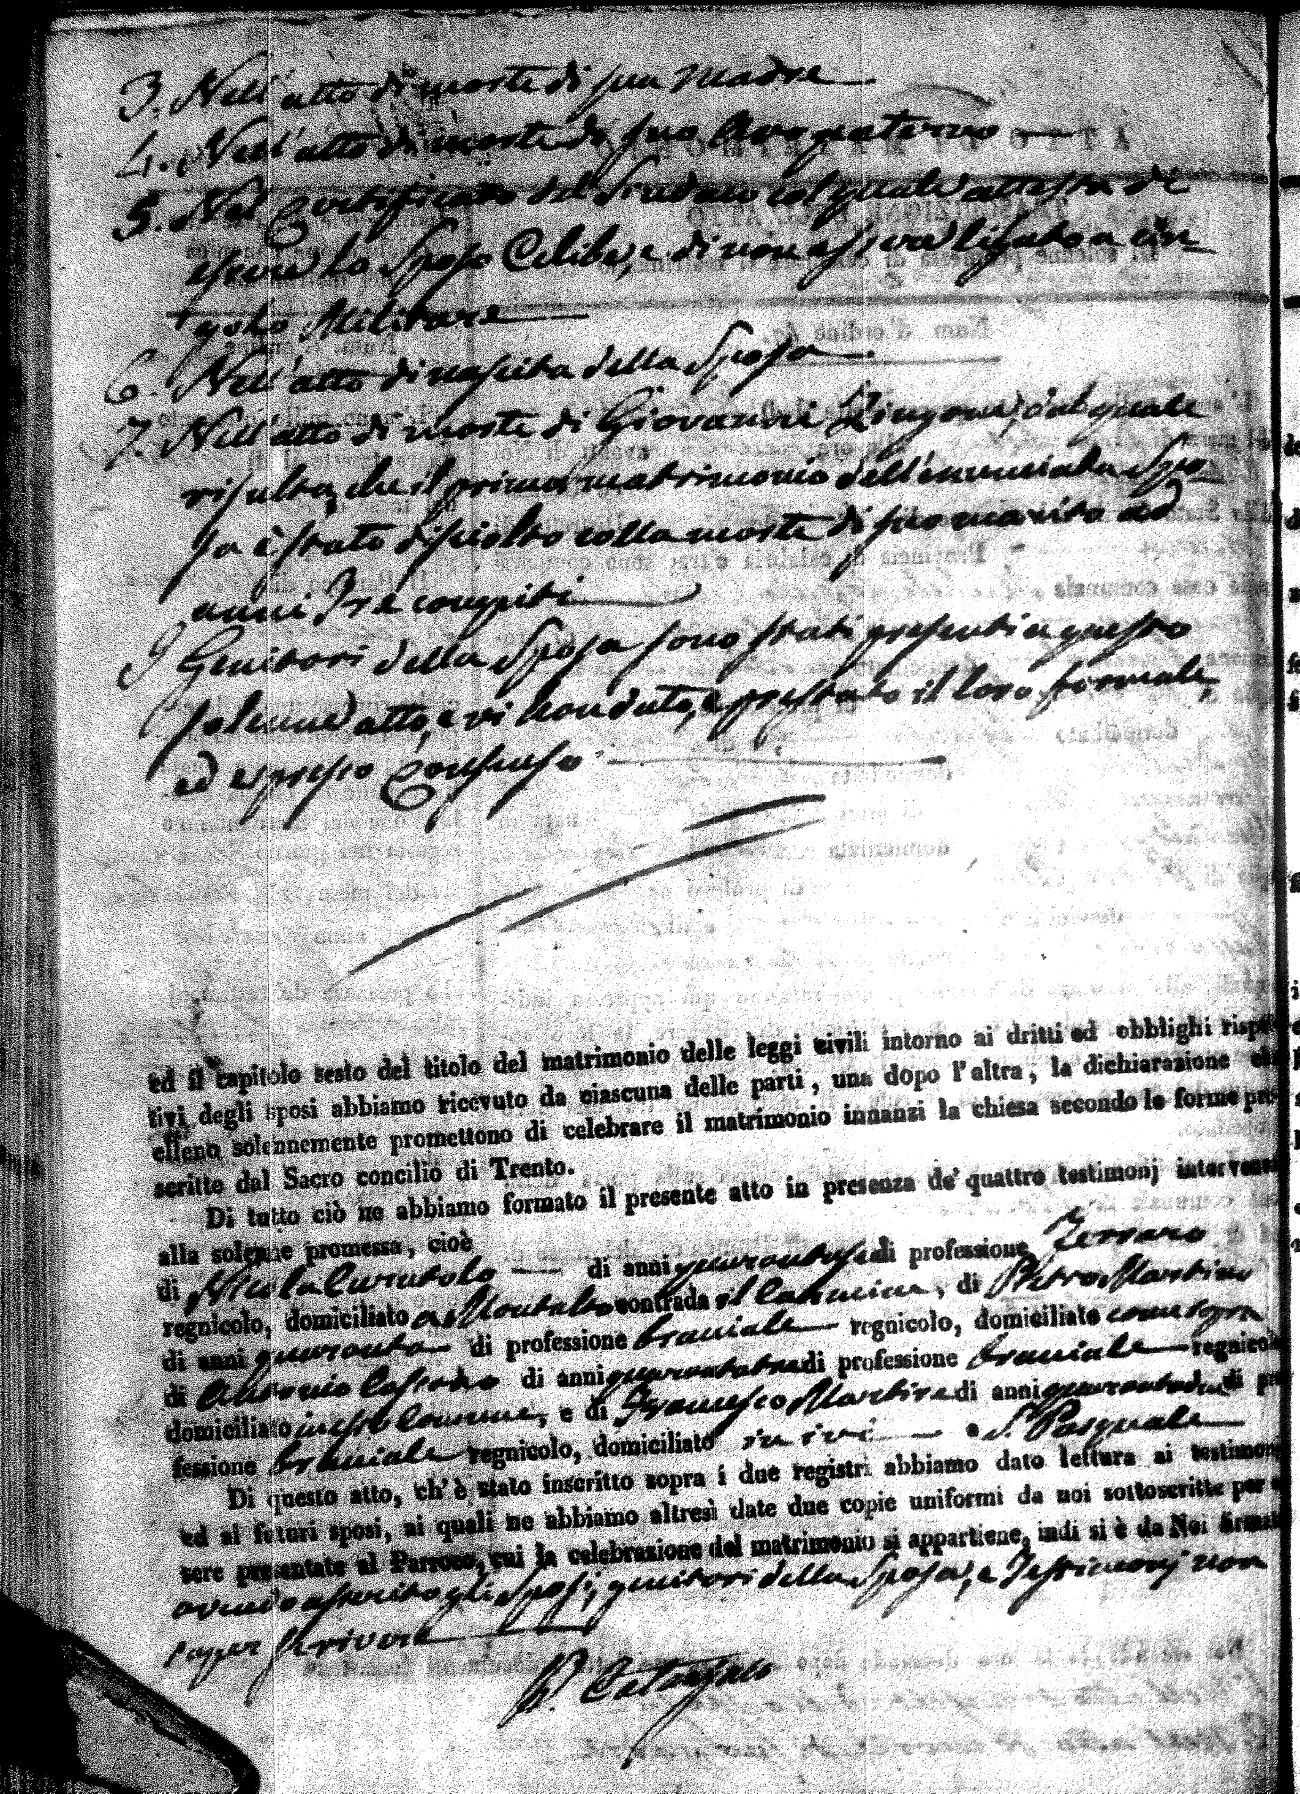 3. Nell'atto di morte di sua Madre
4. Nell'atto di morte di suo Avo paterno
5. Nel Certificato del Sindaco col quale attesta di
essere lo Sposo Celibe, e di non essere ligato a cin
golo Militare
6. Nell'atto di nascita della Sposa
7. Nell'atto di morte di Giovanni Zingone, dal quale
risulta, che il primo matrimonio dell'enunciata Spo
sa è stato disciolto colla morte di suo marito ad
anni Tre compiti
I Genitori della Sposa sono stati presenti a questo
solenne atto, e vi han dato, e prestato il loro formale,
ed espresso Consenso
ed il capitolo sesto del titolo del matrimonio delle leggi civili intorno ai dritti ed obblighi rispet
tivi degli sposi abbiamo ricevuto da ciascuna delle parti, una dopo l'altra, la dichiarazione che
elleno solennemente promettono di celebrare il matrimonio innanzi la chiesa secondo le forme pre-
scritte dal Sacro concilio di Trento.
Di tutto ciò ne abbiamo formato il presente atto in presenza de' quattro testimonj intervenuti
alla solenne promessa, cioè
di Nicola Curatolo di anni quarantasei di professione Ferraro
regnicolo, domiciliato a Montalto contrada il Carmine, di Pietro Martino
di anni quaranta di professione braciale regnicolo, domiciliato come sopra
di Antonio Cascardo di anni quarantatre di professione braciale regnicolo
domiciliato in esso Comune, e di Francesco Martire di anni quarantadue di pro
fessione braciale regnicolo, domiciliato in ivi S. Pasquale
Di questo atto, ch'è stato inscritto sopra i due registri abbiamo dato lettura ai testimonj
ed ai futuri sposi, ai quali ne abbiamo altresì date due copie uniformi da noi sottoscritte per es
sere presentate al Parroco, cui la celebrazione del matrimonio si appartiene, indi si è da Noi firmato
avendo asserito gli Sposi, genitori della Sposa, e Testimonj non
saper scrivere